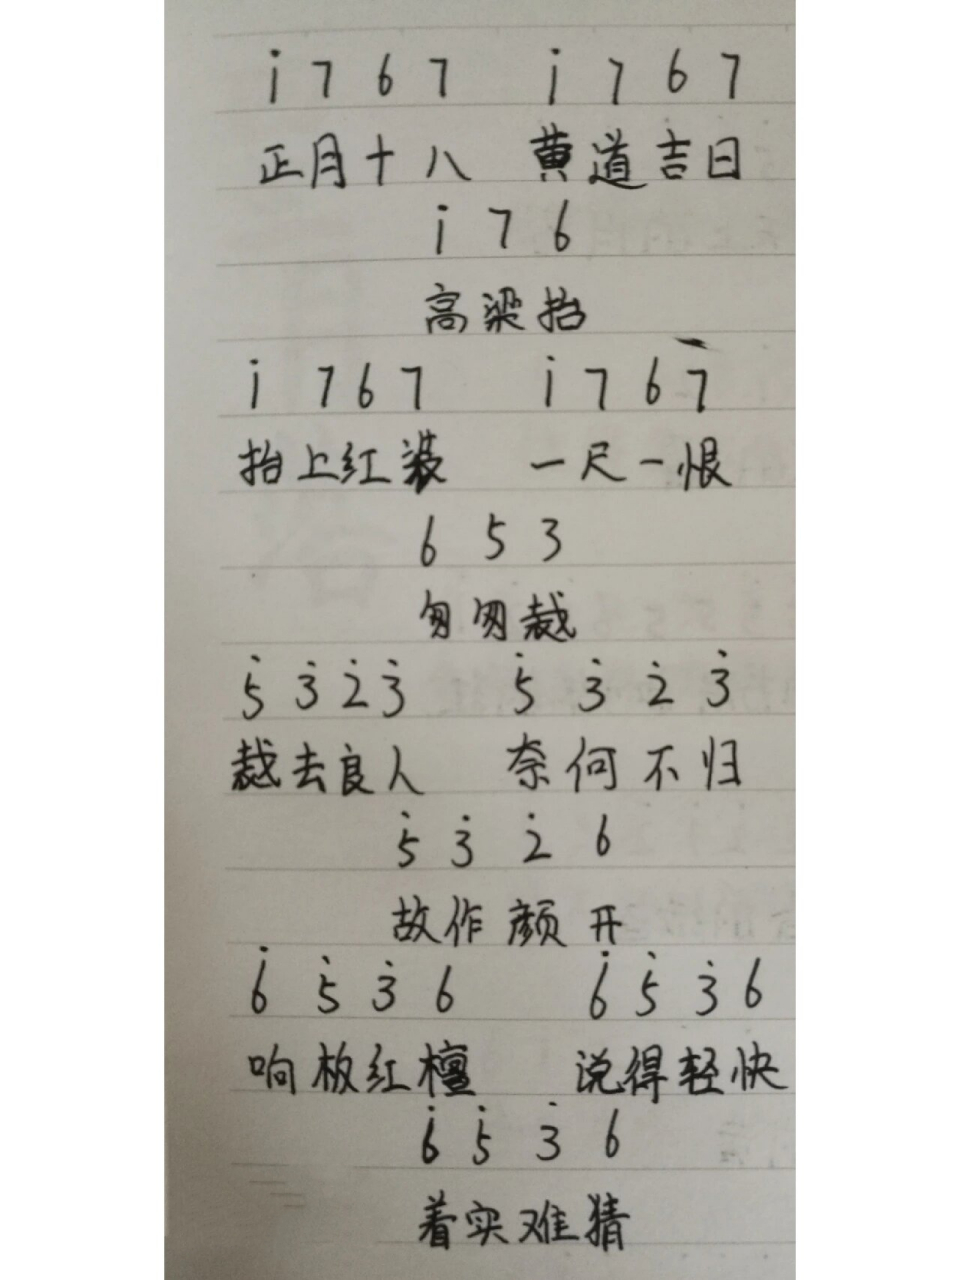 i̇ 7 6 7 i̇ 7 6 7
正月十八 黄道吉日
i̇ 7 6
高梁抬
i̇ 7 6 7 i̇ 7 6 7
抬上红装 一尺一恨
6 5 3
匆匆裁
5̇ 3̇ 2̇ 3̇ 5̇ 3̇ 2̇ 3̇
裁去良人 奈何不归
5̇ 3̇ 2̇ 6
故作颜开
6̇ 5̇ 3̇ 6 6̇ 5̇ 3̇ 6
响板红檀 说得轻快
6̇ 5̇ 3̇ 6
着实难猜